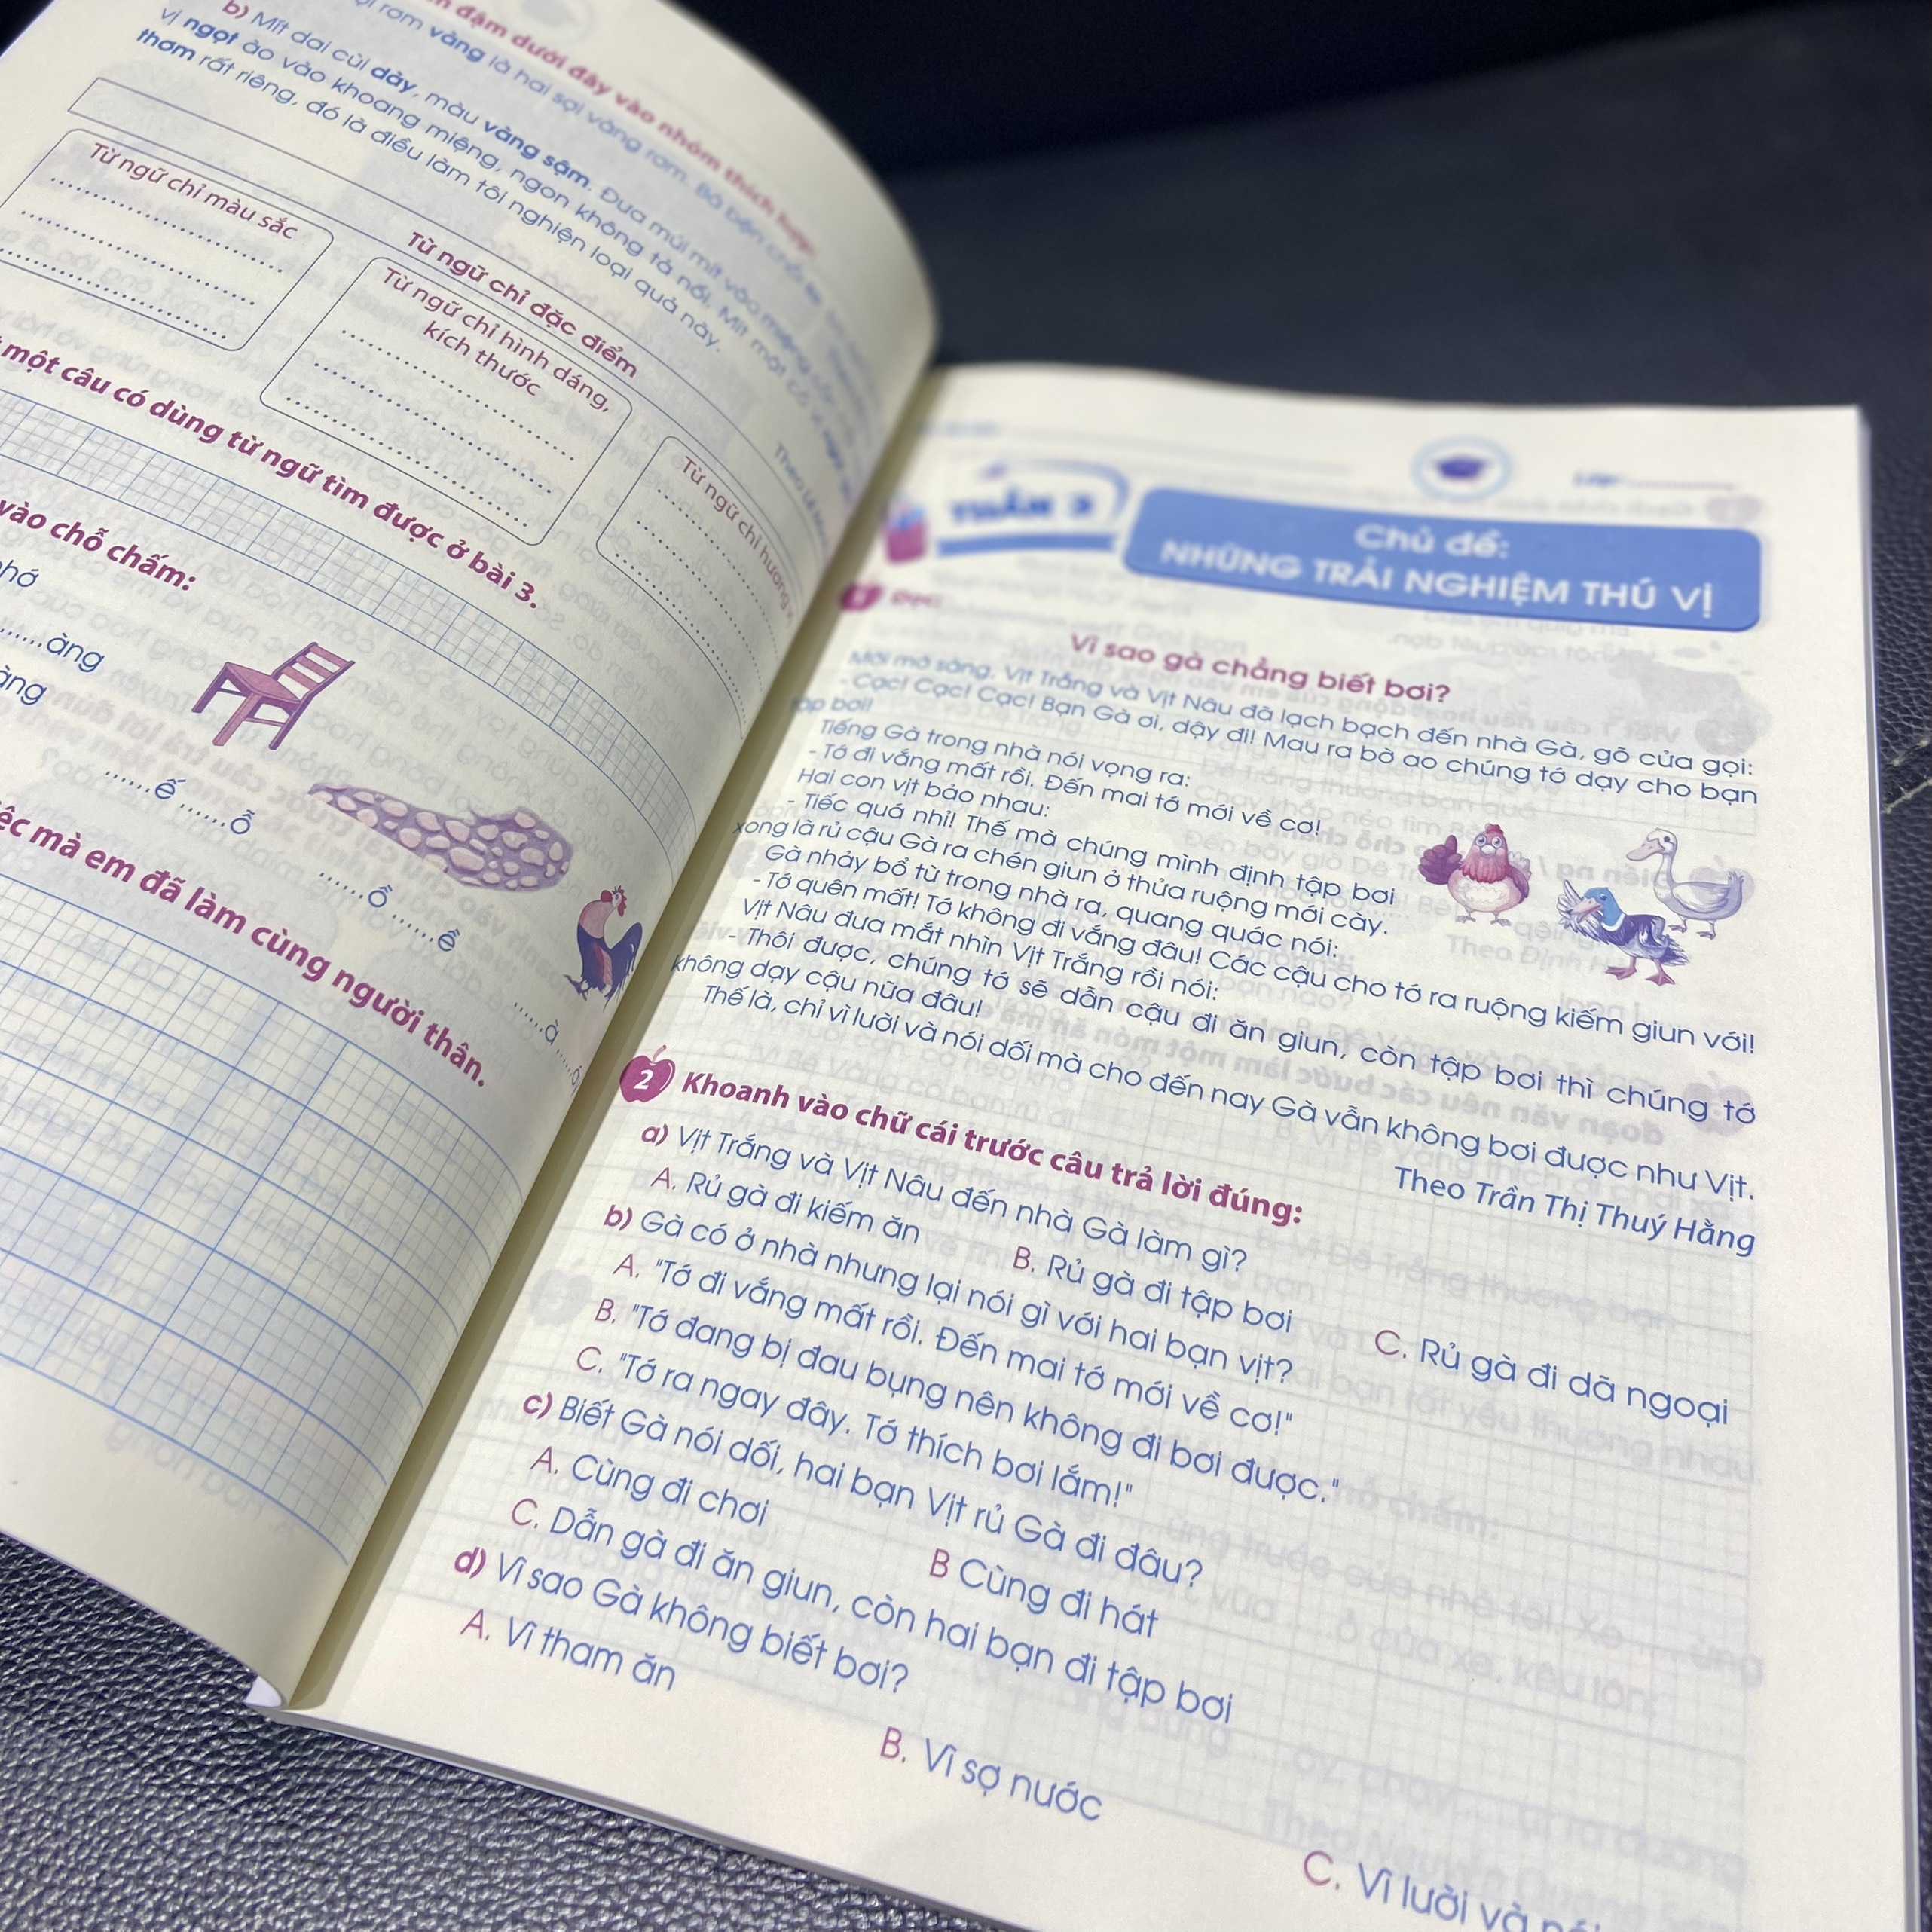 đậm dưới đây vào nhóm thích hợp:
rơm vàng là hai sợi vàng rơm. Bà bện
b) Mít dai cùi dày, màu vàng sậm. Đưa múi mít vào miệng
vị ngọt ào vào khoang miệng, ngon không tả nổi. Mít mật có vị
thơm rất riêng, đó là điều làm tôi nghiện loại quả này.
Từ ngữ chỉ đặc điểm
Từ ngữ chỉ màu sắc
Từ ngữ chỉ hình dáng,
kích thước
Từ ngữ chỉ hương
một câu có dùng từ ngữ tìm được ở bài 3.
vào chỗ chấm:
......àng
......ế ......ỗ
......ồ ......ề
......à ......
mà em đã làm cùng người thân.
TUẦN 3
Chủ đề:
NHỮNG TRẢI NGHIỆM THÚ VỊ
1 Đọc:
Vì sao gà chẳng biết bơi?
Mới mờ sáng, Vịt Trắng và Vịt Nâu đã lạch bạch đến nhà Gà, gõ cửa gọi:
- Cạc! Cạc! Cạc! Bạn Gà ơi, dậy đi! Mau ra bờ ao chúng tớ dạy cho bạn
tập bơi!
Tiếng Gà trong nhà nói vọng ra:
- Tớ đi vắng mất rồi. Đến mai tớ mới về cơ!
Hai con vịt bảo nhau:
- Tiếc quá nhỉ! Thế mà chúng mình định tập bơi
xong là rủ cậu Gà ra chén giun ở thửa ruộng mới cày.
Gà nhảy bổ từ trong nhà ra, quang quác nói:
- Tớ quên mất! Tớ không đi vắng đâu! Các cậu cho tớ ra ruộng kiếm giun với!
Vịt Nâu đưa mắt nhìn Vịt Trắng rồi nói:
- Thôi được, chúng tớ sẽ dẫn cậu đi ăn giun, còn tập bơi thì chúng tớ
không dạy cậu nữa đâu!
Thế là, chỉ vì lười và nói dối mà cho đến nay Gà vẫn không bơi được như Vịt.
Theo Trần Thị Thuý Hằng
2 Khoanh vào chữ cái trước câu trả lời đúng:
a) Vịt Trắng và Vịt Nâu đến nhà Gà làm gì?
A. Rủ gà đi kiếm ăn B. Rủ gà đi tập bơi C. Rủ gà đi dã ngoại
b) Gà có ở nhà nhưng lại nói gì với hai bạn vịt?
A. "Tớ đi vắng mất rồi. Đến mai tớ mới về cơ!"
B. "Tớ đang bị đau bụng nên không đi bơi được."
C. "Tớ ra ngay đây. Tớ thích bơi lắm!"
c) Biết Gà nói dối, hai bạn Vịt rủ Gà đi đâu?
A. Cùng đi chơi B Cùng đi hát
C. Dẫn gà đi ăn giun, còn hai bạn đi tập bơi
d) Vì sao Gà không biết bơi?
A. Vì tham ăn B. Vì sợ nước C. Vì lười và